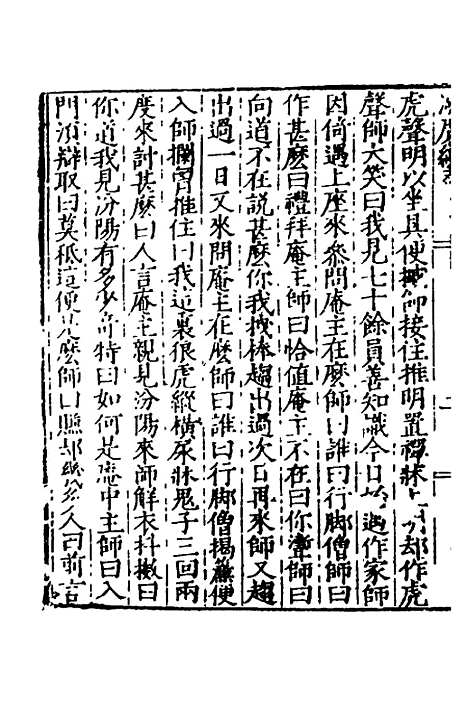 虎聲明以坐具便摵師接住推明置禪牀上明却作虎
聲師大笑曰我見七十餘員善知識今日始遇作家師
因倚遇上座來參問庵主在麼師曰誰曰行脚僧師曰
作甚麼曰禮拜庵主師曰恰值庵主不在曰你聻師曰
向道不在說甚麼你我拽棒趂出遇次日再來師又趂
出遇一日又來問庵主在麼師曰誰曰行脚僧揭簾便
入師攔胷推住曰我這裏狼虎縱橫尿牀鬼子三回兩
度來討甚麼曰人言庵主親見汾陽來師解衣抖擻曰
你道我見汾陽有多少奇特曰如何是庵中主師曰入
門須辯取曰莫秪這便是麼師曰賺却幾多人曰前言